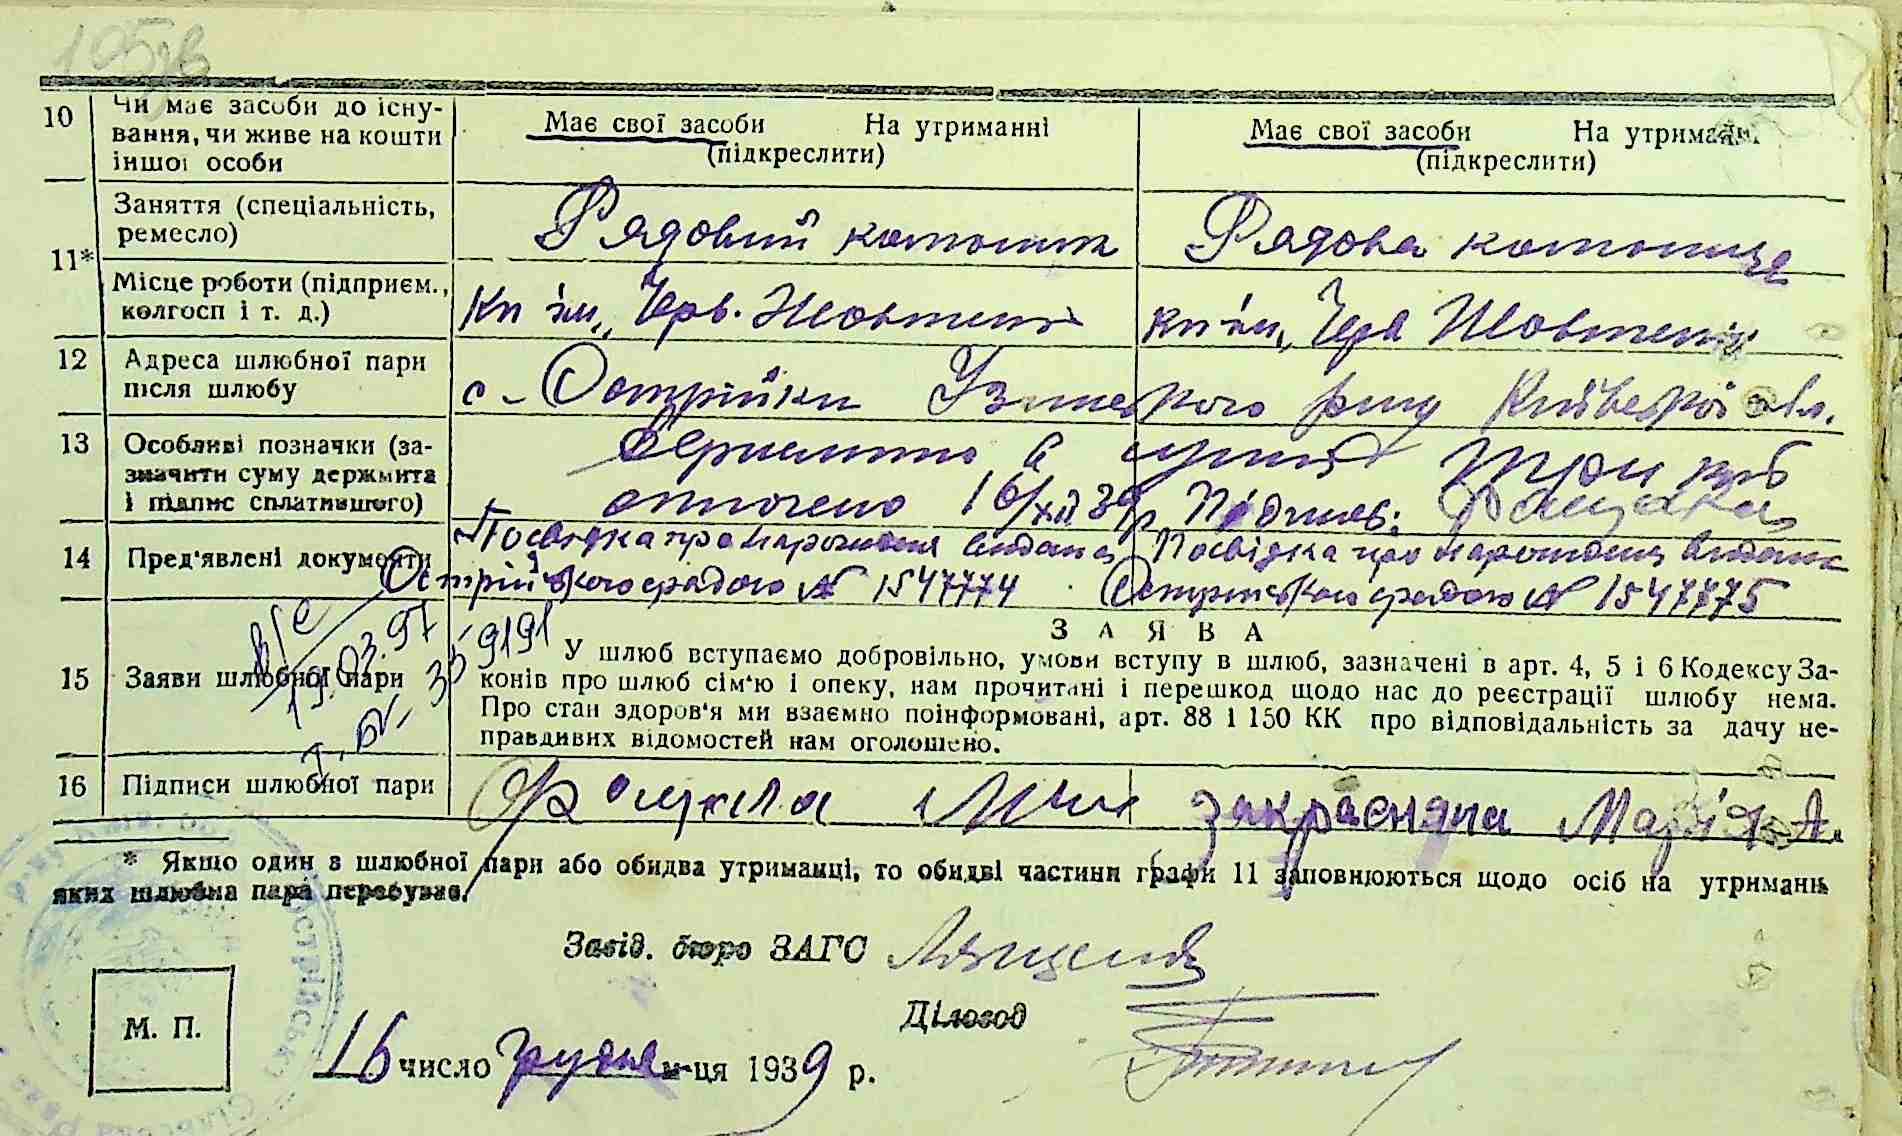 195зв
10 Чи має засоби до існу-
вання, чи живе на кошти
іншої особи
Має свої засоби На утриманні
(підкреслити)
Має свої засоби На утриманні
(підкреслити)
11* Заняття (спеціальність,
ремесло)
Рядовий колгосп
Рядова колгоспниця
Місце роботи (підприєм.,
колгосп і т. д.)
кп ім. „Черв. Жовтень
кп ім. „Черв Жовтень
12 Адреса шлюбної пари
після шлюбу
с. Острійки Узинського р-ну Київської обл.
13 Особливі позначки (за-
значити суму держмита
і підпис сплатившого)
Держмито в сумі три крб
оплачено 16/XII 39 р. Підпис:
14 Пред'явлені документи
Посвідка про народження видана
Острійського срадою № 1547774
Посвідка про народження видана
Острійського срадою № 1547775
15 Заяви шлюбної пари
19.03.97
ЗАЯВА
У шлюб вступаємо добровільно, умови вступу в шлюб, зазначені в арт. 4, 5 і 6 Кодексу За-
конів про шлюб сім'ю і опеку, нам прочитані і перешкод щодо нас до реєстрації шлюбу нема.
Про стан здоров'я ми взаємно поінформовані, арт. 88 і 150 КК про відповідальність за дачу не-
правдивих відомостей нам оголошено.
16 Підписи шлюбної пари
Закрасняна Марія А.
* Якщо один з шлюбної пари або обидва утриманці, то обидві частини графи 11 заповнюються щодо осіб на утриманні
яких шлюбна пара перебуває.
Завід. бюро ЗАГС
Діловод
М. П.
16 число грудня м-ця 1939 р.